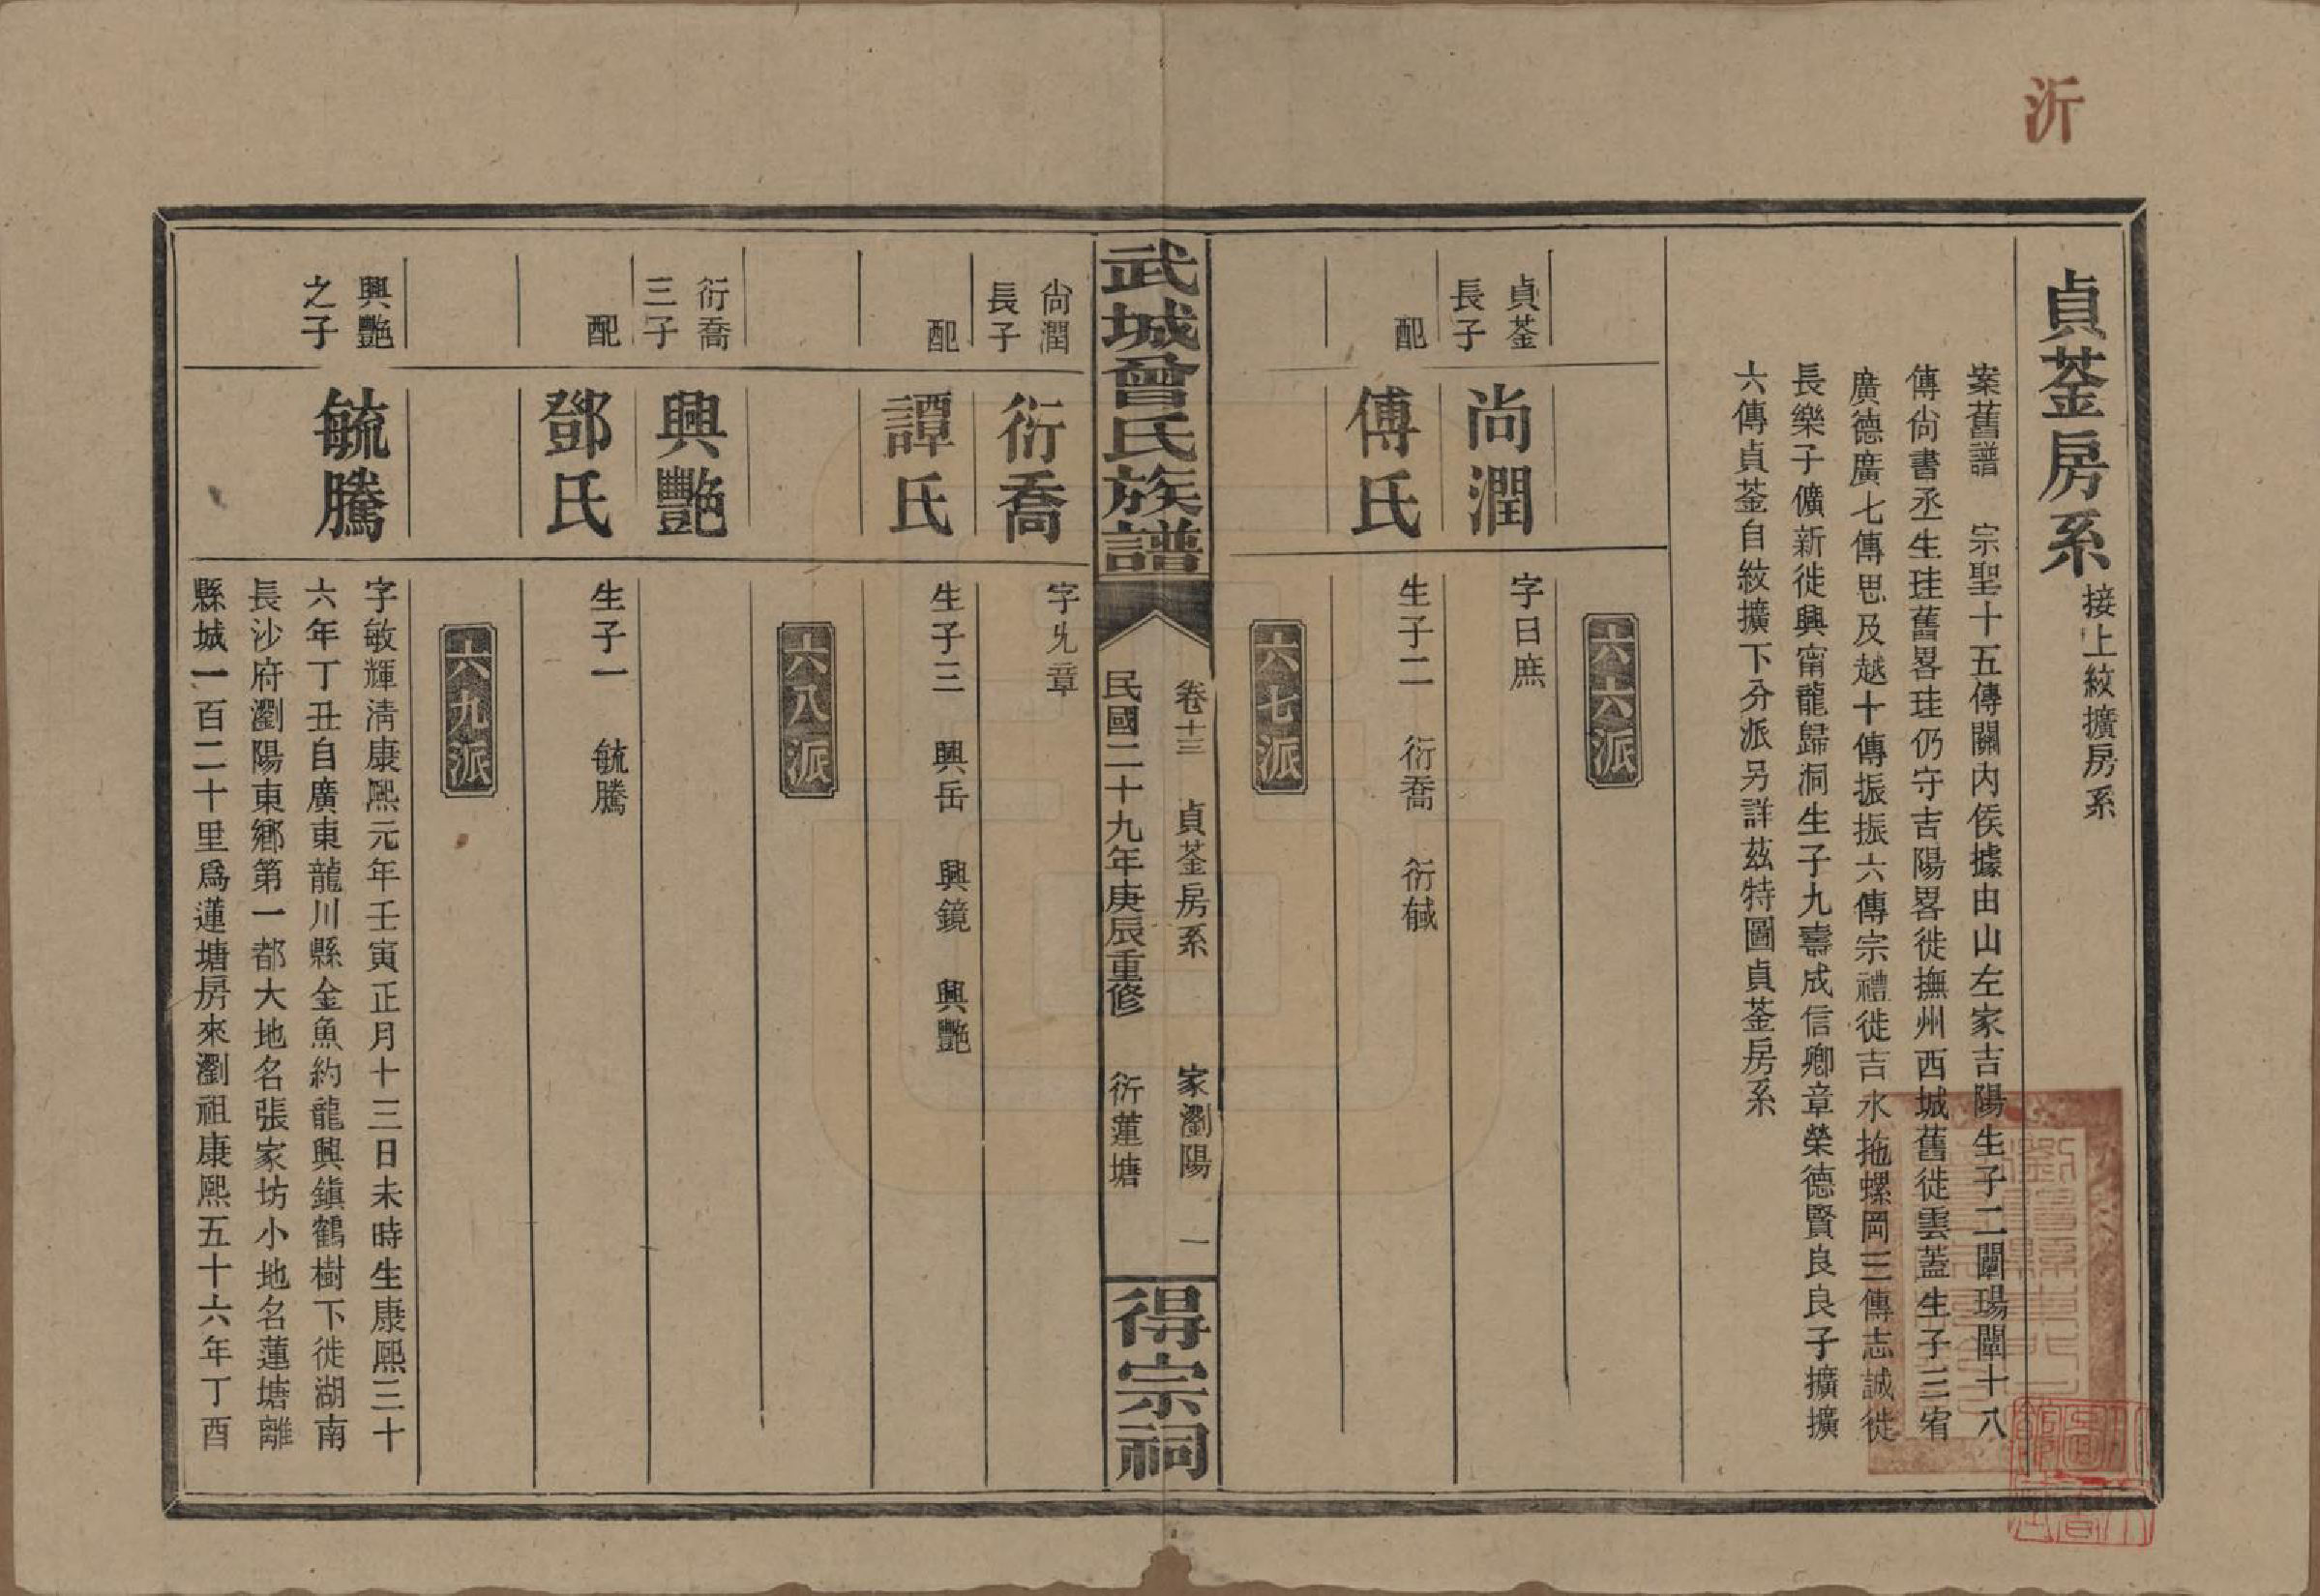 沂
貞荃房系 接上紋擴房系
案舊譜 宗聖十五傳關內侯據由山左家吉陽生子二闡瑒闡十八
傳尙書丞生珪舊畧珪仍守吉陽畧徙撫州西城舊徙雲蓋生子三宥
廣德廣七傳思及越十傳振振六傳宗禮徙吉水拖螺岡三傳志誠徙
長樂子儣新徙興甯龍歸洞生子九壽成信卿章榮德賢良良子擴擴
六傳貞荃自紋擴下分派另詳茲特圖貞荃房系
六六派
貞荃長子 尚潤 字日庶
配 傅氏 生子二 衍喬 衍䤋
六七派
武城曾氏族譜
卷十三 貞荃房系 家瀏陽 一
民國二十九年庚辰重修 衍蓮塘
得宗祠
尙潤長子 衍喬 字允章
配 譚氏 生子三 興岳 興鏡 興艷
六八派
衍喬三子 興艷
配 鄧氏 生子一 毓騰
六九派
興艷之子 毓騰 字敏輝淸康熙元年壬寅正月十三日未時生康熙三十
六年丁丑自廣東龍川縣金魚約龍興鎮鶴樹下徙湖南
長沙府瀏陽東鄉第一都大地名張家坊小地名蓮塘離
縣城一百二十里爲蓮塘房來瀏祖康熙五十六年丁酉